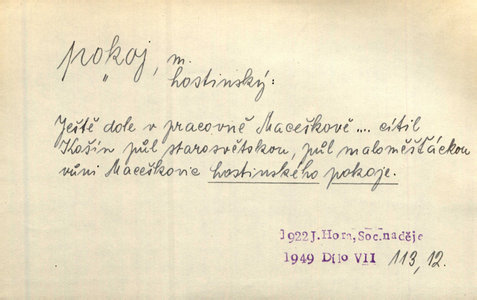 pokoj, m.
hostinský:
Ještě dole v pracovně Maceškově .... cítil
Košín půl starosvětskou, půl maloměšťáckou
vůni Maceškovic hostinského pokoje.
1922 J. Hora, Soc.naděje
1949 Dílo VII 113,12.